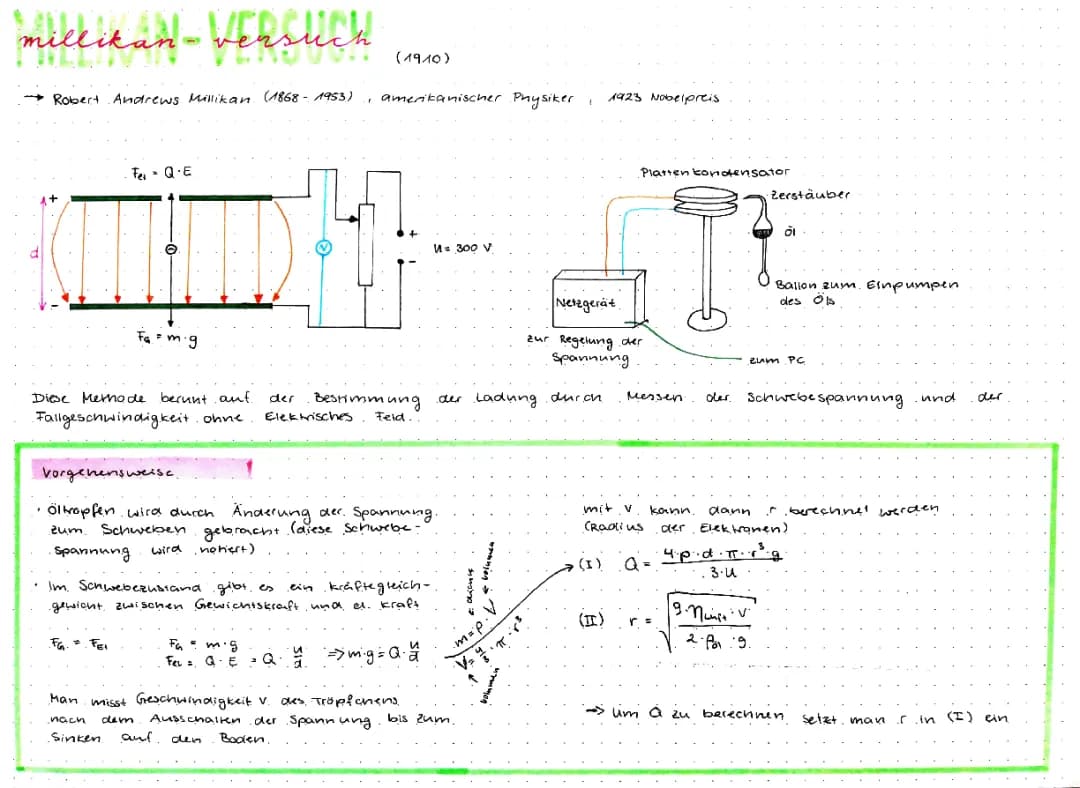 MILLIKAN-VERSUCH
millikan-versuch
(1910)
→ Robert Andrews Millikan (1868 - 1953), amerikanischer Physiker, 1923 Nobelpreis
Fel = Q·E
+
d
-
FG = m·g
V
+
-
U = 300 V
Plattenkondensator
Zerstäuber
Öl
Ballon zum Einpumpen
des Öls
Netzgerät
zur Regelung der
Spannung
zum PC
Diese Methode beruht auf der Bestimmung der Ladung durch Messen der Schwebespannung und der
Fallgeschwindigkeit ohne Elektrisches Feld.
Vorgehensweise
· Öltropfen wird durch Änderung der Spannung
zum Schweben gebracht (diese Schwebe-
spannung wird notiert)
· Im Schwebezustand gibt es ein kräftegleich-
gewicht zwischen Gewichtskraft und el. Kraft
FG = FEl
FG = m·g
FEl = Q·E = Q·U/d ⇒ m·g = Q·U/d
m = ρ·V ← Volumen
← dichte
V = 4/3·π·r³
↑ Volumen
Man misst Geschwindigkeit v des Tröpfchens
nach dem Ausschalten der Spannung bis zum
Sinken auf den Boden.
mit v kann dann r berechnet werden
(Radius der Elektronen)
→ (I) Q = 4·ρ·d·π·r³·g / 3·U
(II) r = √(9·ηLuft·v / 2·ρöl·g)
→ um Q zu berechnen setzt man r in (I) ein